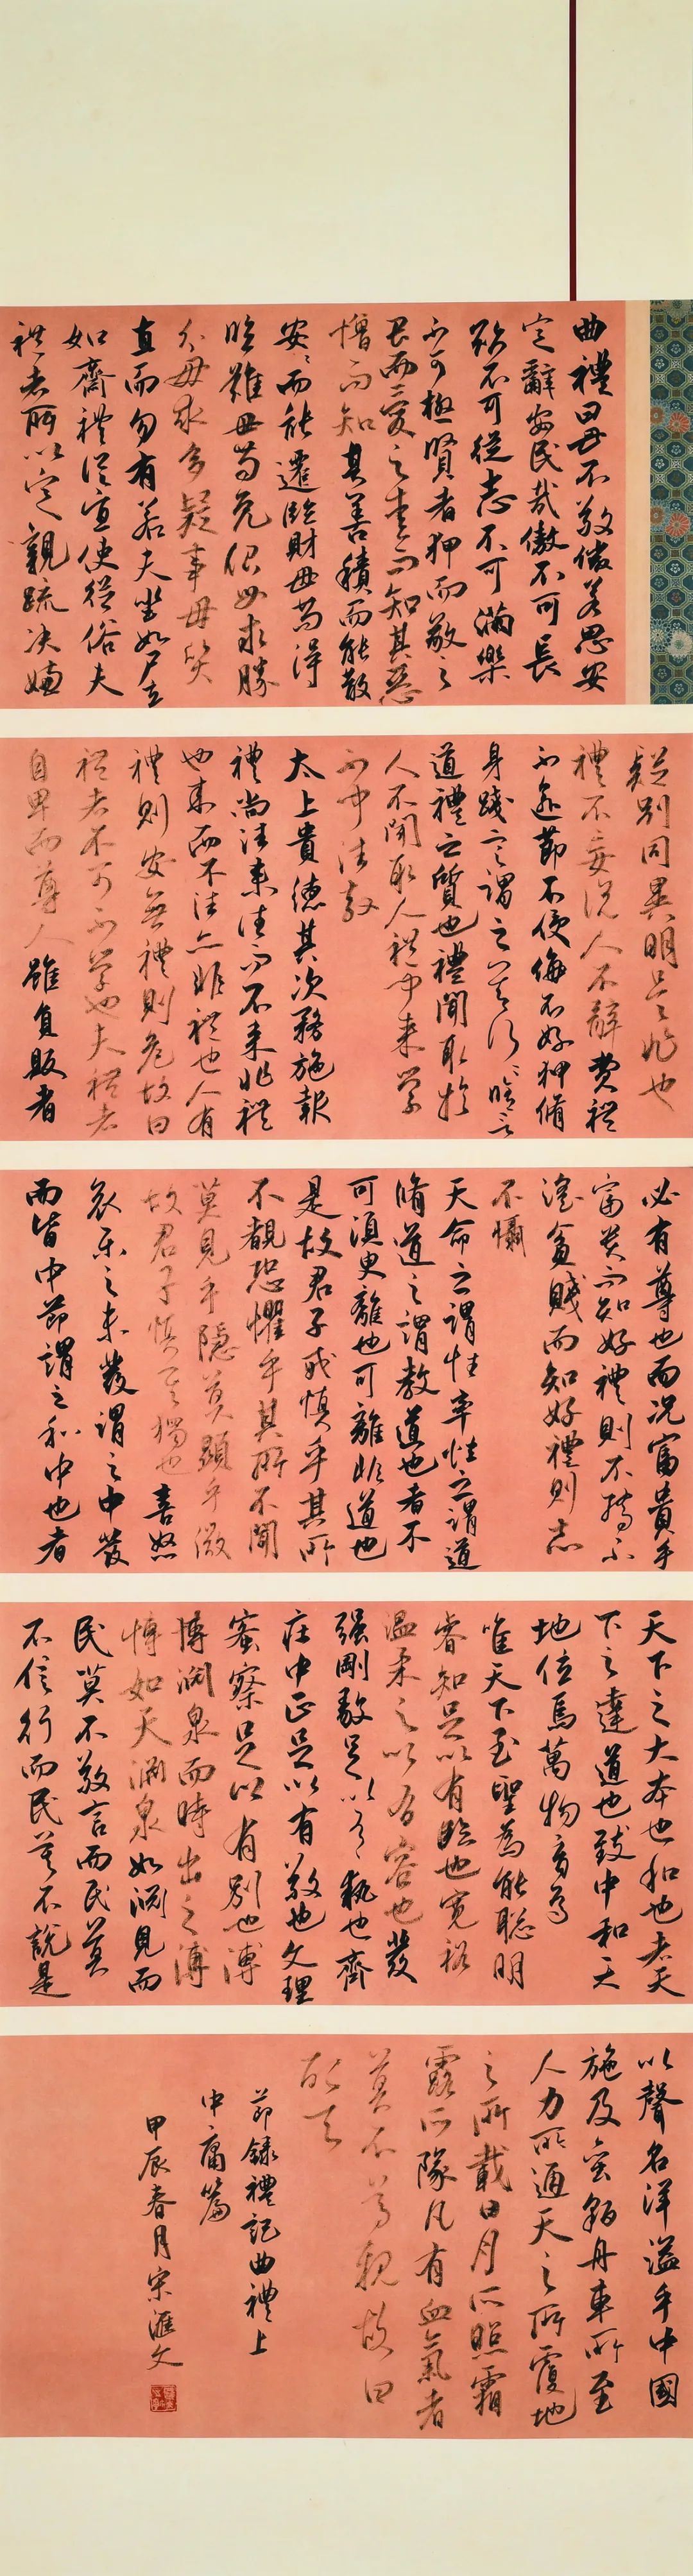 曲禮曰毋不敬儼若思安
定辭安民哉傲不可長
欲不可從志不可滿樂
不可極賢者狎而敬之
畏而愛之愛而知其惡
憎而知其善積而能散
安安而能遷臨財毋苟得
臨難毋苟免很毋求勝
分毋求多疑事毋質
直而勿有若夫坐如尸立
如齋禮從宜使從俗夫
禮者所以定親疏决嫌
疑別同異明是非也
禮不妄說人不辭費禮
不逾節不侵侮不好狎脩
身踐言謂之善行行脩言
道禮之質也禮聞取於
人不聞取人禮聞來學
不聞往教
太上貴德其次務施報
禮尚往來往而不來非禮
也來而不往亦非禮也人有
禮則安無禮則危故曰
禮者不可不學也夫禮者
自卑而尊人雖負販者
必有尊也而况富貴乎
富貴而知好禮則不驕不
淫貧賤而知好禮則志
不懾
天命之謂性率性之謂道
脩道之謂教道也者不
可須臾離也可離非道也
是故君子戒慎乎其所
不覩恐懼乎其所不聞
莫見乎隱莫顯乎微
故君子慎其獨也喜怒
哀樂之未發謂之中發
而皆中節謂之和中也者
天下之大本也和也者天
下之達道也致中和天
地位焉萬物育焉
唯天下至聖為能聰明
睿知足以有臨也寬裕
溫柔足以有容也發
强剛毅足以有執也齊
莊中正足以有敬也文理
密察足以有別也溥
博淵泉而時出之溥
博如天淵泉如淵見而
民莫不敬言而民莫
不信行而民莫不說是
以聲名洋溢乎中國
施及蠻貊舟車所至
人力所通天之所覆地
之所載日月所照霜
露所隊凡有血氣者
莫不尊親故曰
配天
節錄禮記曲禮上
中庸篇
甲辰春月宋滙文